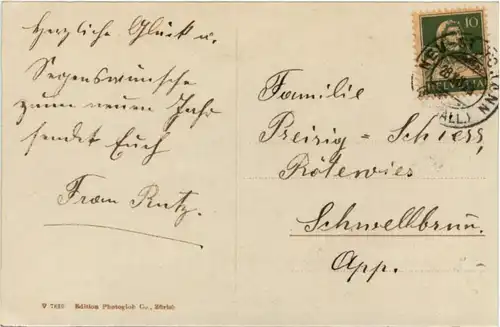 Herzliche Glück u.
Segenswünsche
zum neuen Jahr
sendet Euch
Fram Rutz.
Familie
Preisig = Schiess,
Rötewies
Schwellbrun.
App.
10
HELVETIA
Edition Photoglob Co., Zürich